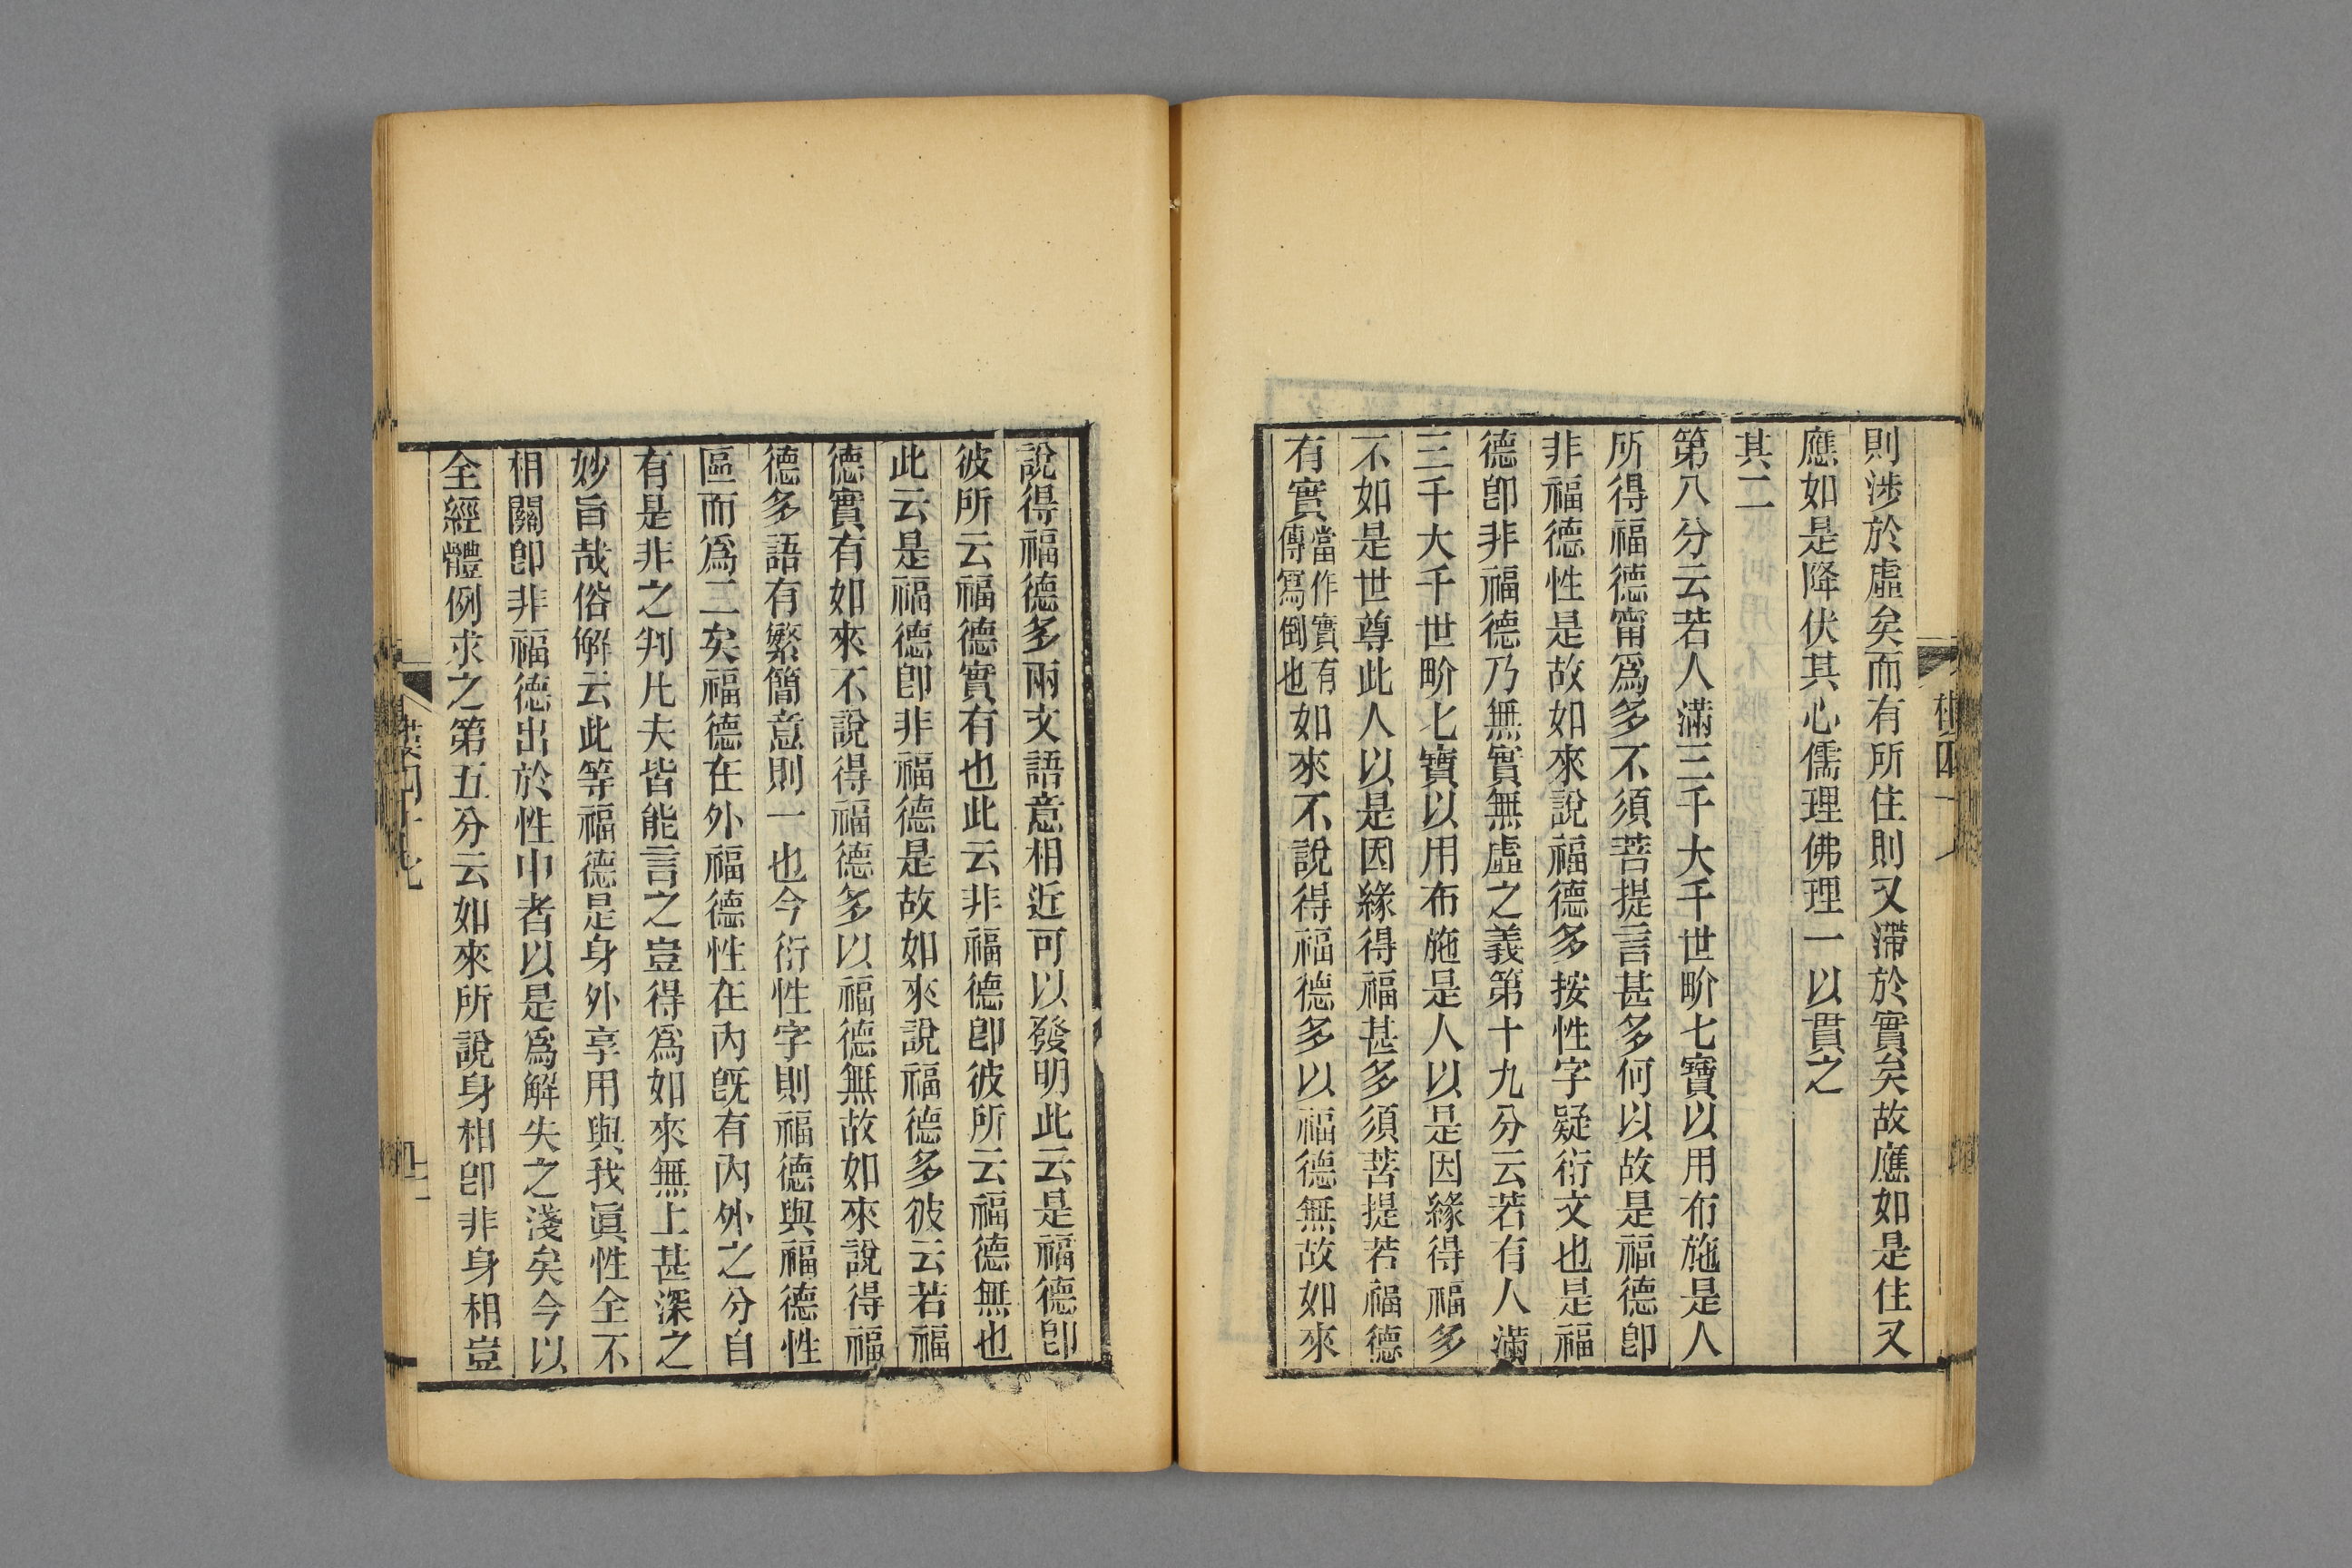 則涉於虛矣而有所住則又滯於實矣故應如是住又
應如是降伏其心儒理佛理一以貫之
其二
第八分云若人滿三千大千世畍七寶以用布施是人
所得福德甯爲多不須菩提言甚多何以故是福德卽
非福德性是故如來說福德多按性字疑衍文也是福
德卽非福德乃無實無虛之義第十九分云若有人滿
三千大千世畍七寶以用布施是人以是因緣得福多
不如是世尊此人以是因緣得福甚多須菩提若福德
有實當作實有傳寫倒也如來不說得福德多以福德無故如來
說得福德多兩文語意相近可以發明此云是福德卽
彼所云福德實有也此云非福德卽彼所云福德無也
此云是福德卽非福德是故如來說福德多彼云若福
德實有如來不說得福德多以福德無故如來說得福
德多語有繁簡意則一也今衍性字則福德與福德性
區而爲二矣福德在外福德性在內旣有內外之分自
有是非之判凡夫皆能言之豈得爲如來無上甚深之
妙旨哉俗解云此等福德是身外享用與我眞性全不
相關卽非福德出於性中者以是爲解失之淺矣今以
全經體例求之第五分云如來所說身相卽非身相豈